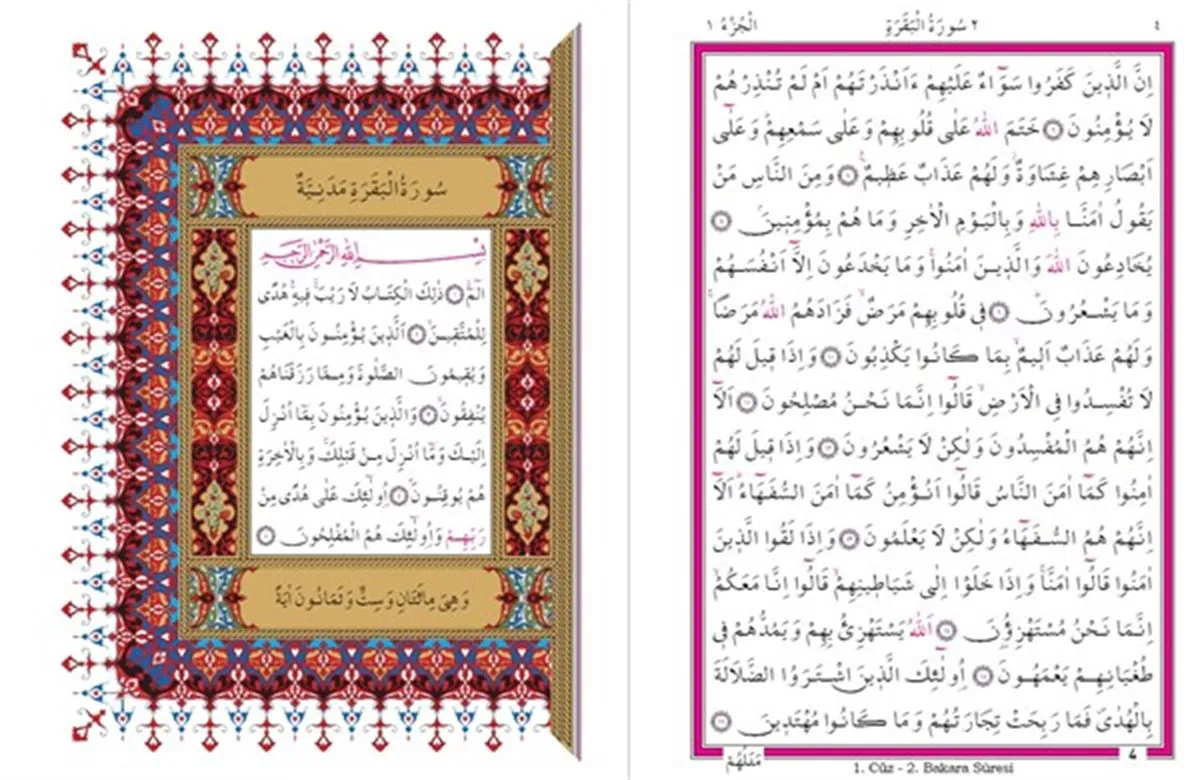 سُورَةُ الْبَقَرَةِ مَدَنِيَّةٌ
بِسْمِ اللّٰهِ الرَّحْمٰنِ الرَّحِيمِ
الٓمٓ ۝ ذٰلِكَ الْكِتَابُ لَا رَيْبَۚ فِيهِۚ هُدًى
لِلْمُتَّقِينَۙ ۝ اَلَّذِينَ يُؤْمِنُونَ بِالْغَيْبِ
وَيُقِيمُونَ الصَّلٰوةَ وَمِمَّا رَزَقْنَاهُمْ
يُنْفِقُونَۙ ۝ وَالَّذِينَ يُؤْمِنُونَ بِمَٓا اُنْزِلَ
اِلَيْكَ وَمَٓا اُنْزِلَ مِنْ قَبْلِكَۚ وَبِالْاٰخِرَةِ
هُمْ يُوقِنُونَۜ ۝ اُو۬لٰٓئِكَ عَلٰى هُدًى مِنْ
رَبِّهِمْ وَاُو۬لٰٓئِكَ هُمُ الْمُفْلِحُونَ ۝
وَهِىَ مِائَتَانِ وَسِتٌّ وَثَمَانُونَ اٰيَةً
٤
٢ سُورَةُ الْبَقَرَةِ
اَلْجُزْءُ ١
اِنَّ الَّذِينَ كَفَرُوا سَوَٓاءٌ عَلَيْهِمْ ءَاَنْذَرْتَهُمْ اَمْ لَمْ تُنْذِرْهُمْ
لَا يُؤْمِنُونَ ۝ خَتَمَ اللّٰهُ عَلٰى قُلُوبِهِمْ وَعَلٰى سَمْعِهِمْۜ وَعَلٰٓى
اَبْصَارِهِمْ غِشَاوَةٌۘ وَلَهُمْ عَذَابٌ عَظِيمٌ۟ ۝ وَمِنَ النَّاسِ مَنْ
يَقُولُ اٰمَنَّا بِاللّٰهِ وَبِالْيَوْمِ الْاٰخِرِ وَمَا هُمْ بِمُؤْمِنِينَۢ ۝
يُخَادِعُونَ اللّٰهَ وَالَّذِينَ اٰمَنُواۚ وَمَا يَخْدَعُونَ اِلَّٓا اَنْفُسَهُمْ
وَمَا يَشْعُرُونَۜ ۝ فِى قُلُوبِهِمْ مَرَضٌۙ فَزَادَهُمُ اللّٰهُ مَرَضًاۚ
وَلَهُمْ عَذَابٌ اَلِيمٌۙ بِمَا كَانُوا يَكْذِبُونَ ۝ وَاِذَا قِيلَ لَهُمْ
لَا تُفْسِدُوا فِى الْاَرْضِۙ قَالُٓوا اِنَّمَا نَحْنُ مُصْلِحُونَ ۝ اَلَٓا
اِنَّهُمْ هُمُ الْمُفْسِدُونَ وَلٰكِنْ لَا يَشْعُرُونَ ۝ وَاِذَا قِيلَ لَهُمْ
اٰمِنُوا كَمَٓا اٰمَنَ النَّاسُ قَالُٓوا اَنُؤْمِنُ كَمَٓا اٰمَنَ السُّفَهَٓاءُۜ اَلَٓا
اِنَّهُمْ هُمُ السُّفَهَٓاءُ وَلٰكِنْ لَا يَعْلَمُونَ ۝ وَاِذَا لَقُوا الَّذِينَ
اٰمَنُوا قَالُٓوا اٰمَنَّاۚ وَاِذَا خَلَوْا اِلٰى شَيَاطِينِهِمْۙ قَالُٓوا اِنَّا مَعَكُمْۙ
اِنَّمَا نَحْنُ مُسْتَهْزِؤُ۫نَ ۝ اَللّٰهُ يَسْتَهْزِئُ بِهِمْ وَيَمُدُّهُمْ فِى
طُغْيَانِهِمْ يَعْمَهُونَ ۝ اُو۬لٰٓئِكَ الَّذِينَ اشْتَرَوُا الضَّلَالَةَ
بِالْهُدٰىۖ فَمَا رَبِحَتْ تِجَارَتُهُمْ وَمَا كَانُوا مُهْتَدِينَ ۝
مَثَلُهُمْ
4
1. Cüz - 2. Bakara Sûresi